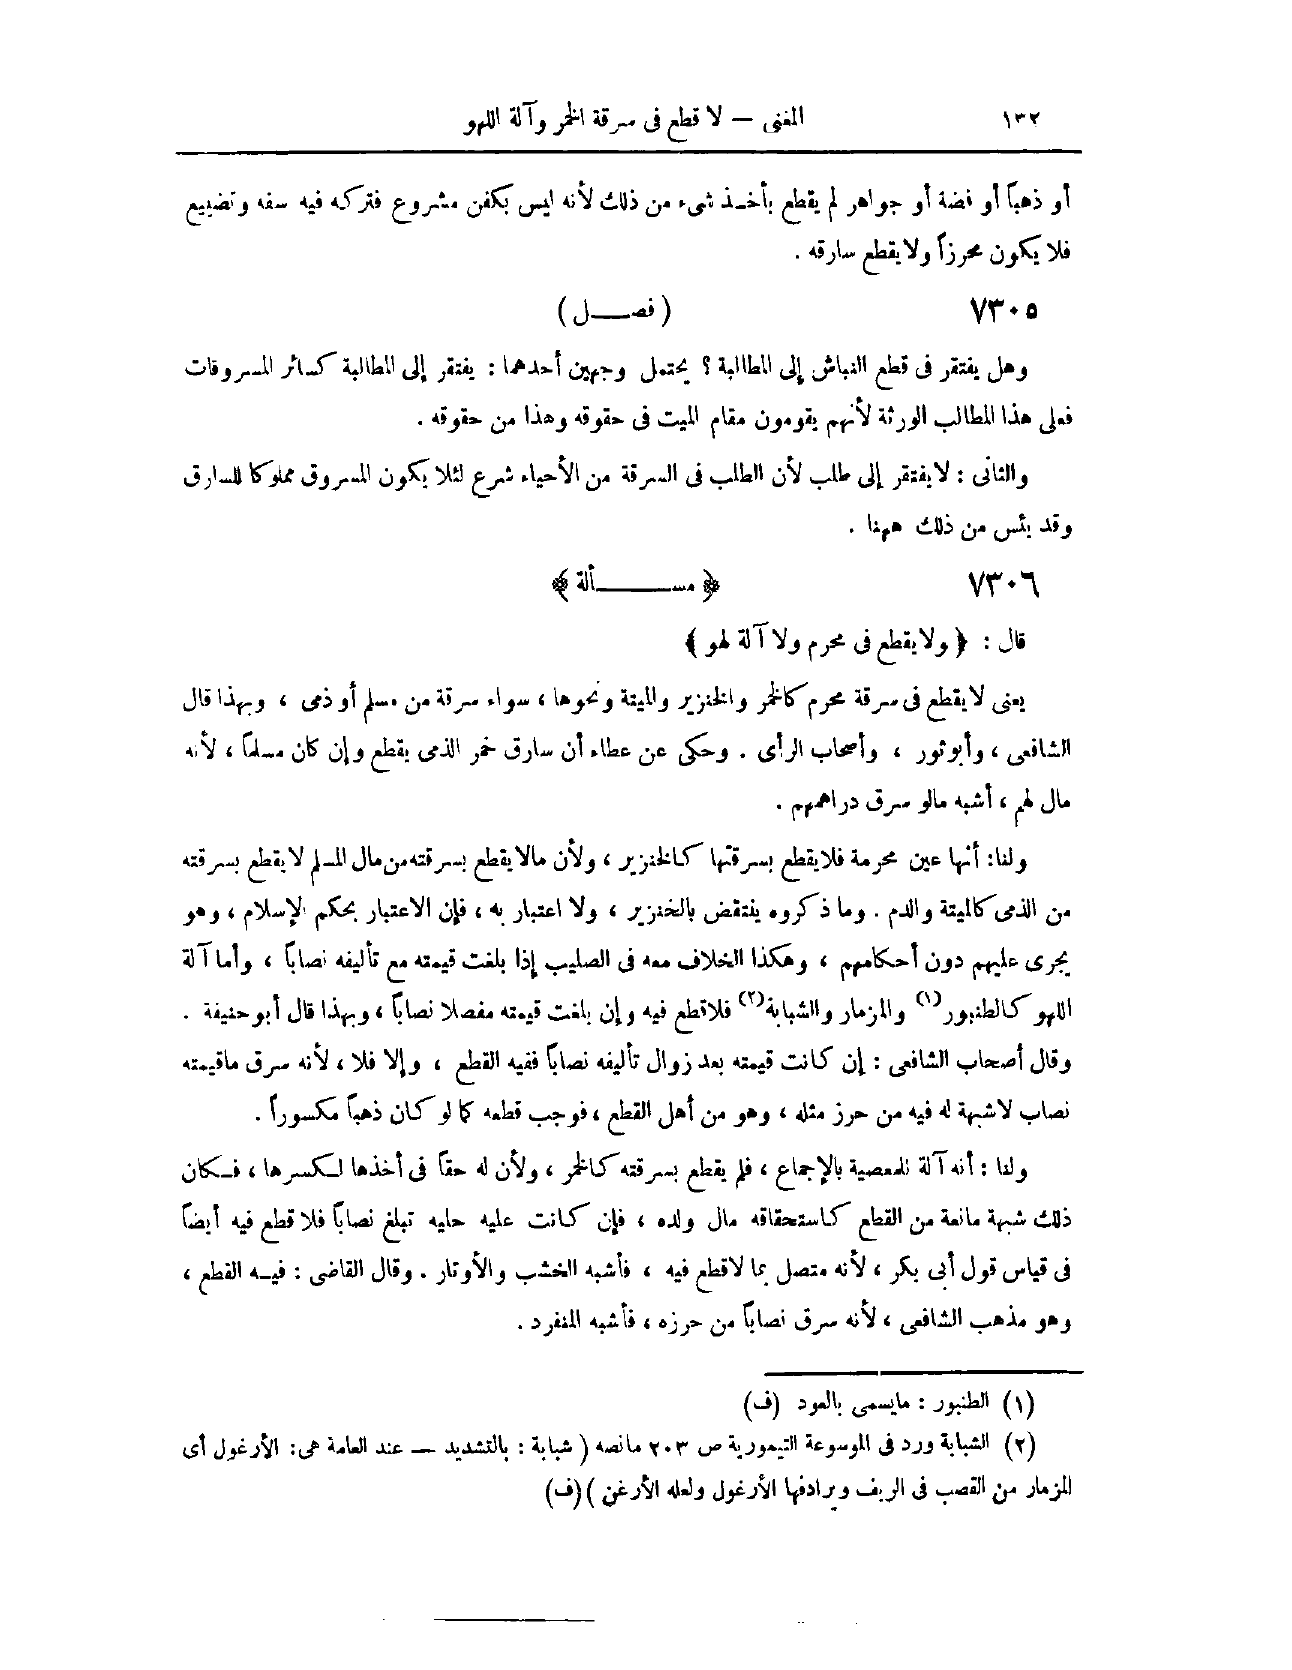 ١٣٢ المغنى — لا قطع فى سرقة الخمر وآلة اللهو
أو ذهباً أو فضة أو جواهر لم يقطع بأخـذ شىء من ذلك لأنه ليس بكفن مشروع فتركه فيه سفه وتضييع
فلا يكون محرزاً ولا يقطع سارقه .
٧٣٠٥ ( فصـــل )
وهل يفتقر فى قطع النباش إلى المطالبة ؟ يحتمل وجهين أحدهما : يفتقر إلى المطالبة كسائر المسروقات
فعلى هذا المطالب الورثة لأنهم يقومون مقام الميت فى حقوقه وهذا من حقوقه .
والثانى : لا يفتقر إلى طلب لأن الطلب فى السرقة من الأحياء شرع لئلا يكون المسروق مملوكا للسارق
وقد يئس من ذلك ههنا .
٧٣٠٦ ﴿ مســــــألة ﴾
قال : ﴿ ولا يقطع فى محرم ولا آلة لهو ﴾
يعنى لا يقطع فى سرقة محرم كالخمر والخنزير والميتة ونحوها ، سواء سرقة من مسلم أو ذمى ، وبهذا قال
الشافعى ، وأبو ثور ، وأصحاب الرأى . وحكى عن عطاء أن سارق خمر الذمى يقطع وإن كان مسلماً ، لأنه
مال لهم ، أشبه مالو سرق دراهمهم .
ولنا: أنها عين محرمة فلا يقطع بسرقتها كالخنزير ، ولأن مالا يقطع بسرقته من مال المسلم لا يقطع بسرقته
من الذمى كالميتة والدم . وما ذكروه ينتقض بالخنزير ، ولا اعتبار به ، فإن الاعتبار بحكم الإسلام ، وهو
يجرى عليهم دون أحكامهم ، وهكذا الخلاف معه فى الصليب إذا بلغت قيمته مع تأليفه نصاباً ، وأما آلة
اللهو كالطنبور(١) والمزمار والشبابة(٢) فلا قطع فيه وإن بلغت قيمته مفصلا نصاباً ، وبهذا قال أبو حنيفة .
وقال أصحاب الشافعى : إن كانت قيمته بعد زوال تأليفه نصاباً ففيه القطع ، وإلا فلا ، لأنه سرق ماقيمته
نصاب لا شبهة له فيه من حرز مثله ، وهو من أهل القطع ، فوجب قطعه كما لو كان ذهباً مكسوراً .
ولنا : أنه آلة للمعصية بالإجماع ، فلم يقطع بسرقته كالخمر ، ولأن له حقاً فى أخذها لكسرها ، فـكان
ذلك شبهة مانعة من القطع كاستحقاقه مال ولده ، فإن كانت عليه حليه تبلغ نصاباً فلا قطع فيه أيضاً
فى قياس قول أبى بكر ، لأنه متصل بما لا قطع فيه ، فأشبه الخشب والأوتار . وقال القاضى : فيـه القطع ،
وهو مذهب الشافعى ، لأنه سرق نصاباً من حرزه ، فأشبه المنفرد .
(١) الطنبور : مايسمى بالعود (ف)
(٢) الشبابة ورد فى الموسوعة التيمورية ص ٢٠٣ مانصه ( شبابة : بالتشديد — عند العامة هى: الأرغول أى
المزمار من القصب فى الريف ويرادفها الأرغول ولعله الأرغن )(ف)